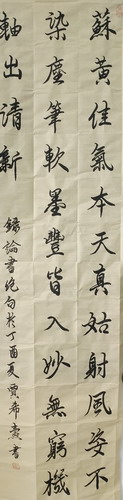 蘇黃佳氣本天真姑射風姿不
染塵筆軟墨豐皆入妙無窮機
軸出清新
錄論書絕句於丁酉夏賈希憲書